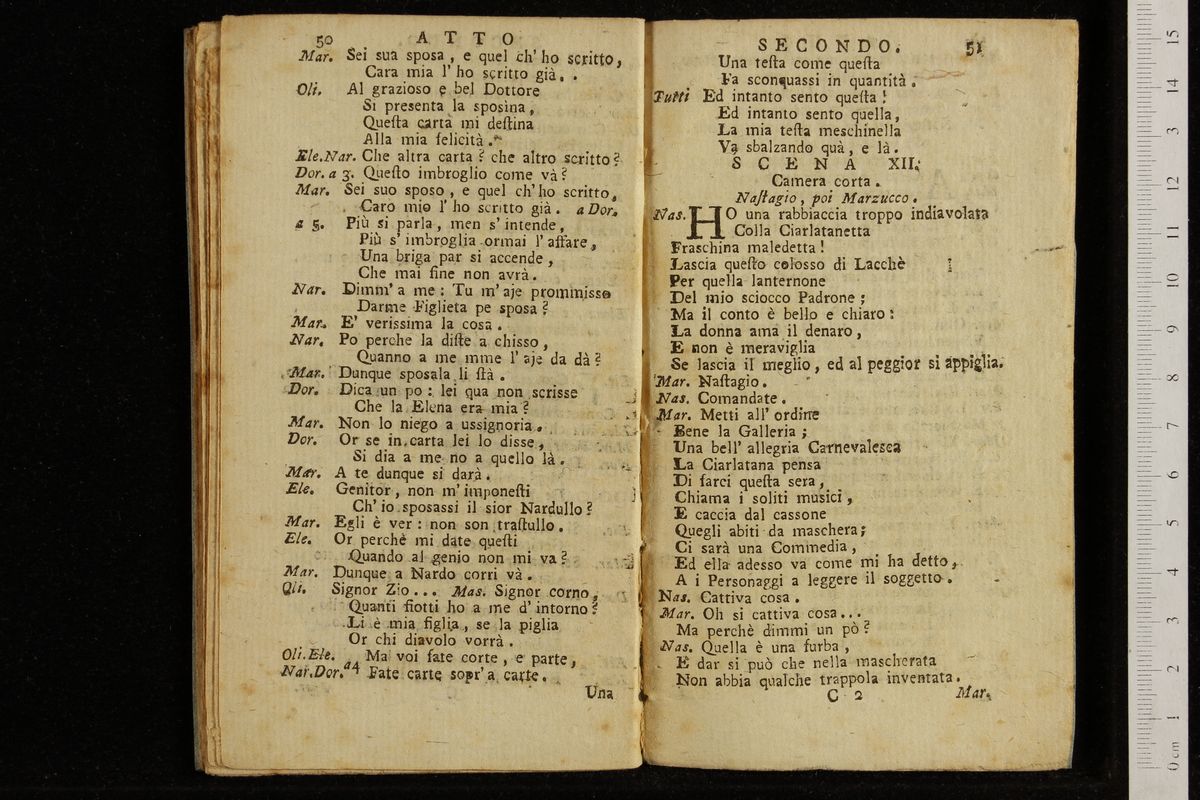 50 ATTO
Mar. Sei sua sposa, e quel ch' ho scritto,
Cara mia l' ho scritto già.
Oli. Al grazioso e bel Dottore
Si presenta la sposina,
Queſta carta mi deſtina
Alla mia felicità.
Ele.Nar. Che altra carta? che altro scritto?
Dor. a 3. Queſto imbroglio come và?
Mar. Sei suo sposo, e quel ch' ho scritto,
Caro mio l' ho scritto già. a Dor.
a 5. Più si parla, men s' intende,
Più s' imbroglia ormai l' affare,
Una briga par si accende,
Che mai fine non avrà.
Nar. Dimm' a me: Tu m' aje prommisso
Darme Figlieta pe sposa?
Mar. E' verissima la cosa.
Nar. Po perche la diſte a chisso,
Quanno a me mme l' aje da dà?
Mar. Dunque sposala li ſtà.
Dor. Dica un po: lei qua non scrisse
Che la Elena era mia?
Mar. Non lo niego a ussignoria.
Dor. Or se in carta lei lo disse,
Si dia a me no a quello là.
Mar. A te dunque si darà.
Ele. Genitor, non m' imponeſti
Ch' io sposassi il sior Nardullo?
Mar. Egli è ver: non son traſtullo.
Ele. Or perchè mi date queſti
Quando al genio non mi va?
Mar. Dunque a Nardo corri và.
Oli. Signor Zio... Mas. Signor corno,
Quanti fiotti ho a me d' intorno?
Li è mia figlia, se la piglia
Or chi diavolo vorrà.
Oli.Ele. Ma voi fate corte, e parte,
Nar.Dor. a4 Fate carte sopr' a carte.
Una
SECONDO. 51
Una teſta come queſta
Fa sconquassi in quantità.
Tutti Ed intanto sento queſta!
Ed intanto sento quella,
La mia teſta meschinella
Va sbalzando quà, e là.
SCENA XII.
Camera corta.
Naſtagio, poi Marzucco.
Nas. HO una rabbiaccia troppo indiavolata
Colla Ciarlatanetta
Fraschina maledetta!
Lascia queſto colosso di Lacchè
Per quella lanternone
Del mio sciocco Padrone;
Ma il conto è bello e chiaro:
La donna ama il denaro,
E non è meraviglia
Se lascia il meglio, ed al peggior si appiglia.
Mar. Naſtagio.
Nas. Comandate.
Mar. Metti all' ordine
Bene la Galleria;
Una bell' allegria Carnevalesca
La Ciarlatana pensa
Di farci queſta sera,
Chiama i soliti musici,
E caccia dal cassone
Quegli abiti da maschera;
Ci sarà una Commedia,
Ed ella adesso va come mi ha detto,
A i Personaggi a leggere il soggetto.
Nas. Cattiva cosa.
Mar. Oh si cattiva cosa...
Ma perchè dimmi un pò?
Nas. Quella è una furba,
E dar si può che nella mascherata
Non abbia qualche trappola inventata.
C 2 Mar.
0 cm 1 2 3 4 5 6 7 8 9 10 11 12 13 14 15